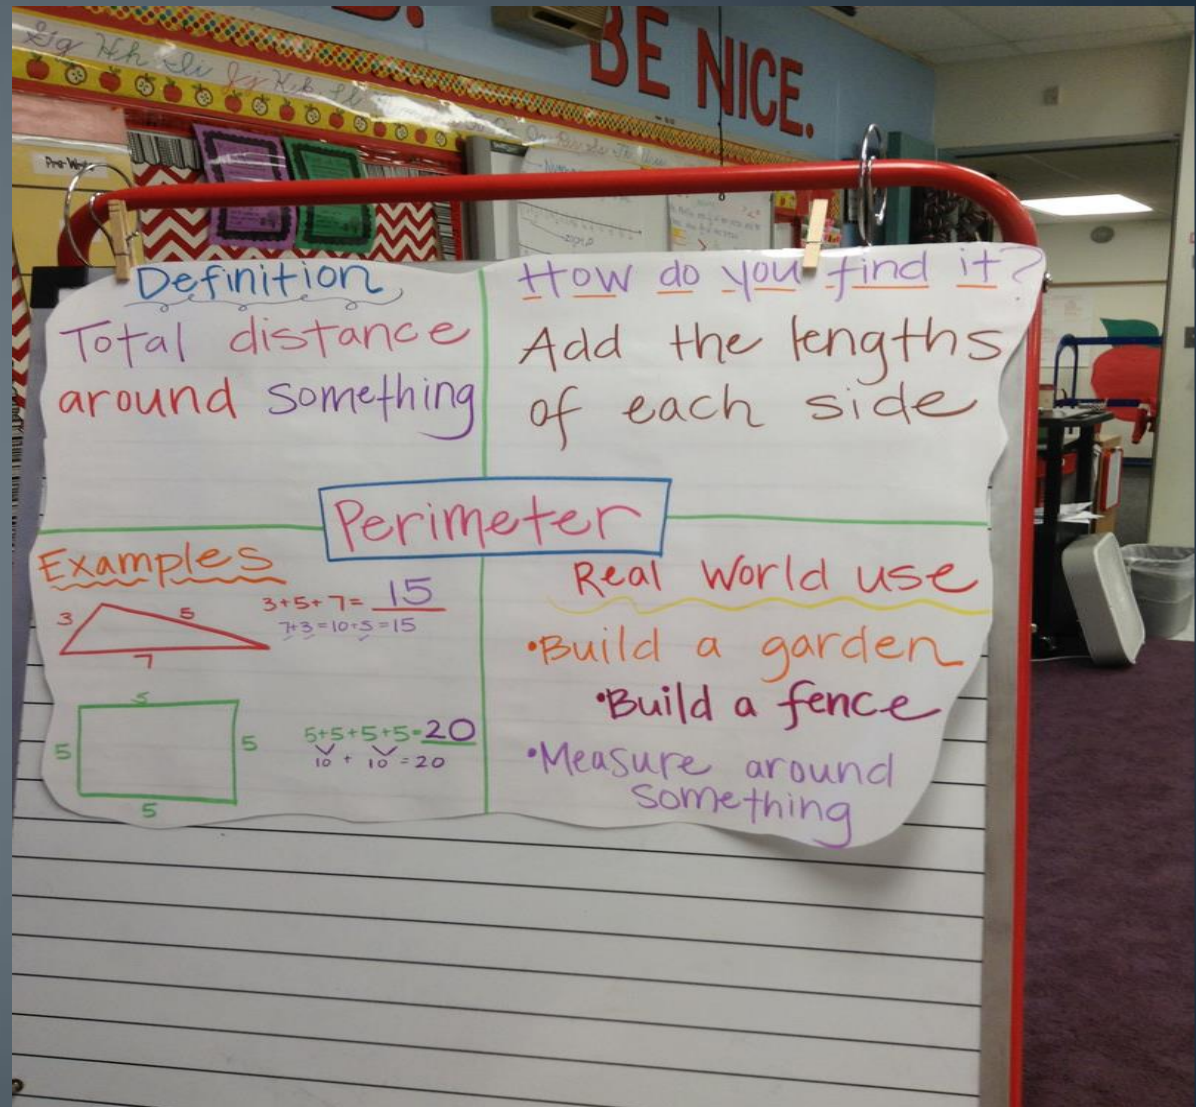 BE NICE.
Gg Hh Ii Jj Kk Ll
Pre-Work
Definition
Total distance
around something
How do you find it?
Add the lengths
of each side
Perimeter
Examples
3
5
7
3+5+7= 15
7+3=10+5=15
5
5
5
5
5+5+5+5=20
10 + 10 = 20
Real World use
•Build a garden
•Build a fence
•Measure around
something